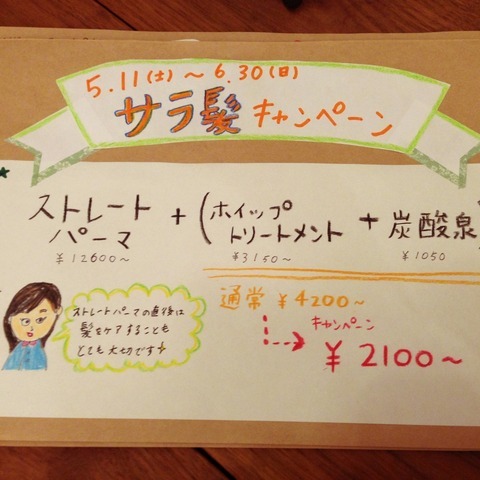 5.11(土)～6.30(日)
サラ髪 キャンペーン
ストレート
パーマ
¥12600～
+
(ホイップ
トリートメント
¥3150～
+
炭酸泉
¥1050
ストレートパーマの直後は
髪をケアすることも
とても大切です♪
通常 ¥4200～
キャンペーン
¥2100～